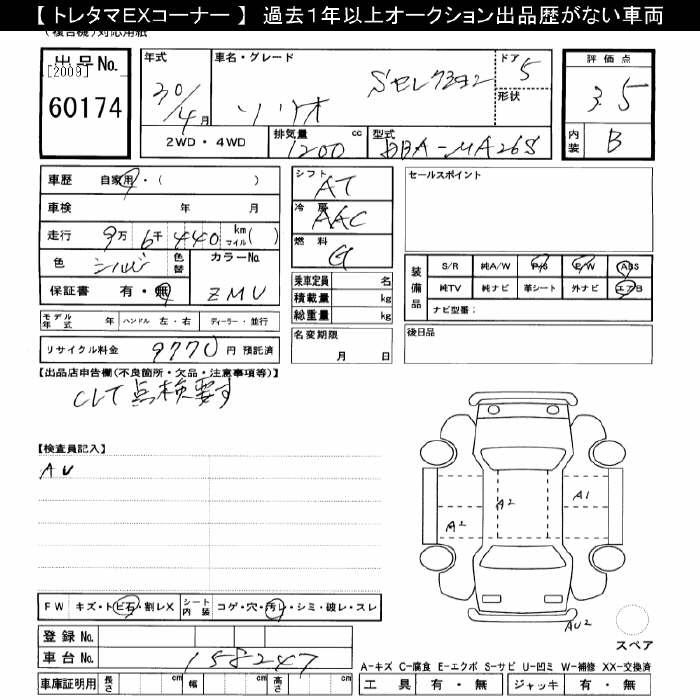 【トレタマEXコーナー】 過去1年以上オークション出品歴がない車両
(複合機)対応用紙
出品No. [2009] 60174
年式 30/4月
車名・グレード ソリオ Sセレクション
ドア 5
形状
2WD・4WD
排気量 cc 1200
型式 DBA-MA26S
評価点 3.5
内装 B
車歴 自家用・( )
車検 年 月
走行 9万6千440 km マイル( )
色 シルバ 色替 カラーNo. ZMV
保証書 有・無
シフト AT
冷房 AAC
燃料 G
乗車定員 名
積載量 kg
総重量 kg
セールスポイント
装備品 S/R 純A/W P/S P/W ABS
純TV 純ナビ 革シート 外ナビ エアB
ナビ型番:
モデル年式 年 ハンドル 左・右 ディーラー・並行
リサイクル料金 9770円 預託済
名変期限 月 日
後日品
【出品店申告欄(不良箇所・欠品・注意事項等)】
CLT点検要す
【検査員記入】
AU
A2
A1
A2
AU2
スペア
FW キズ・トビ石・割レX シート内装 コゲ・穴・汚レ・シミ・破レ・スレ
登録No.
車台No. 158247
車庫証明用 長さ cm 幅 cm 高さ cm
A-キズ C-腐食 E-エクボ S-サビ U-凹ミ W-補修 XX-交換済
工具 有・無 ジャッキ 有・無